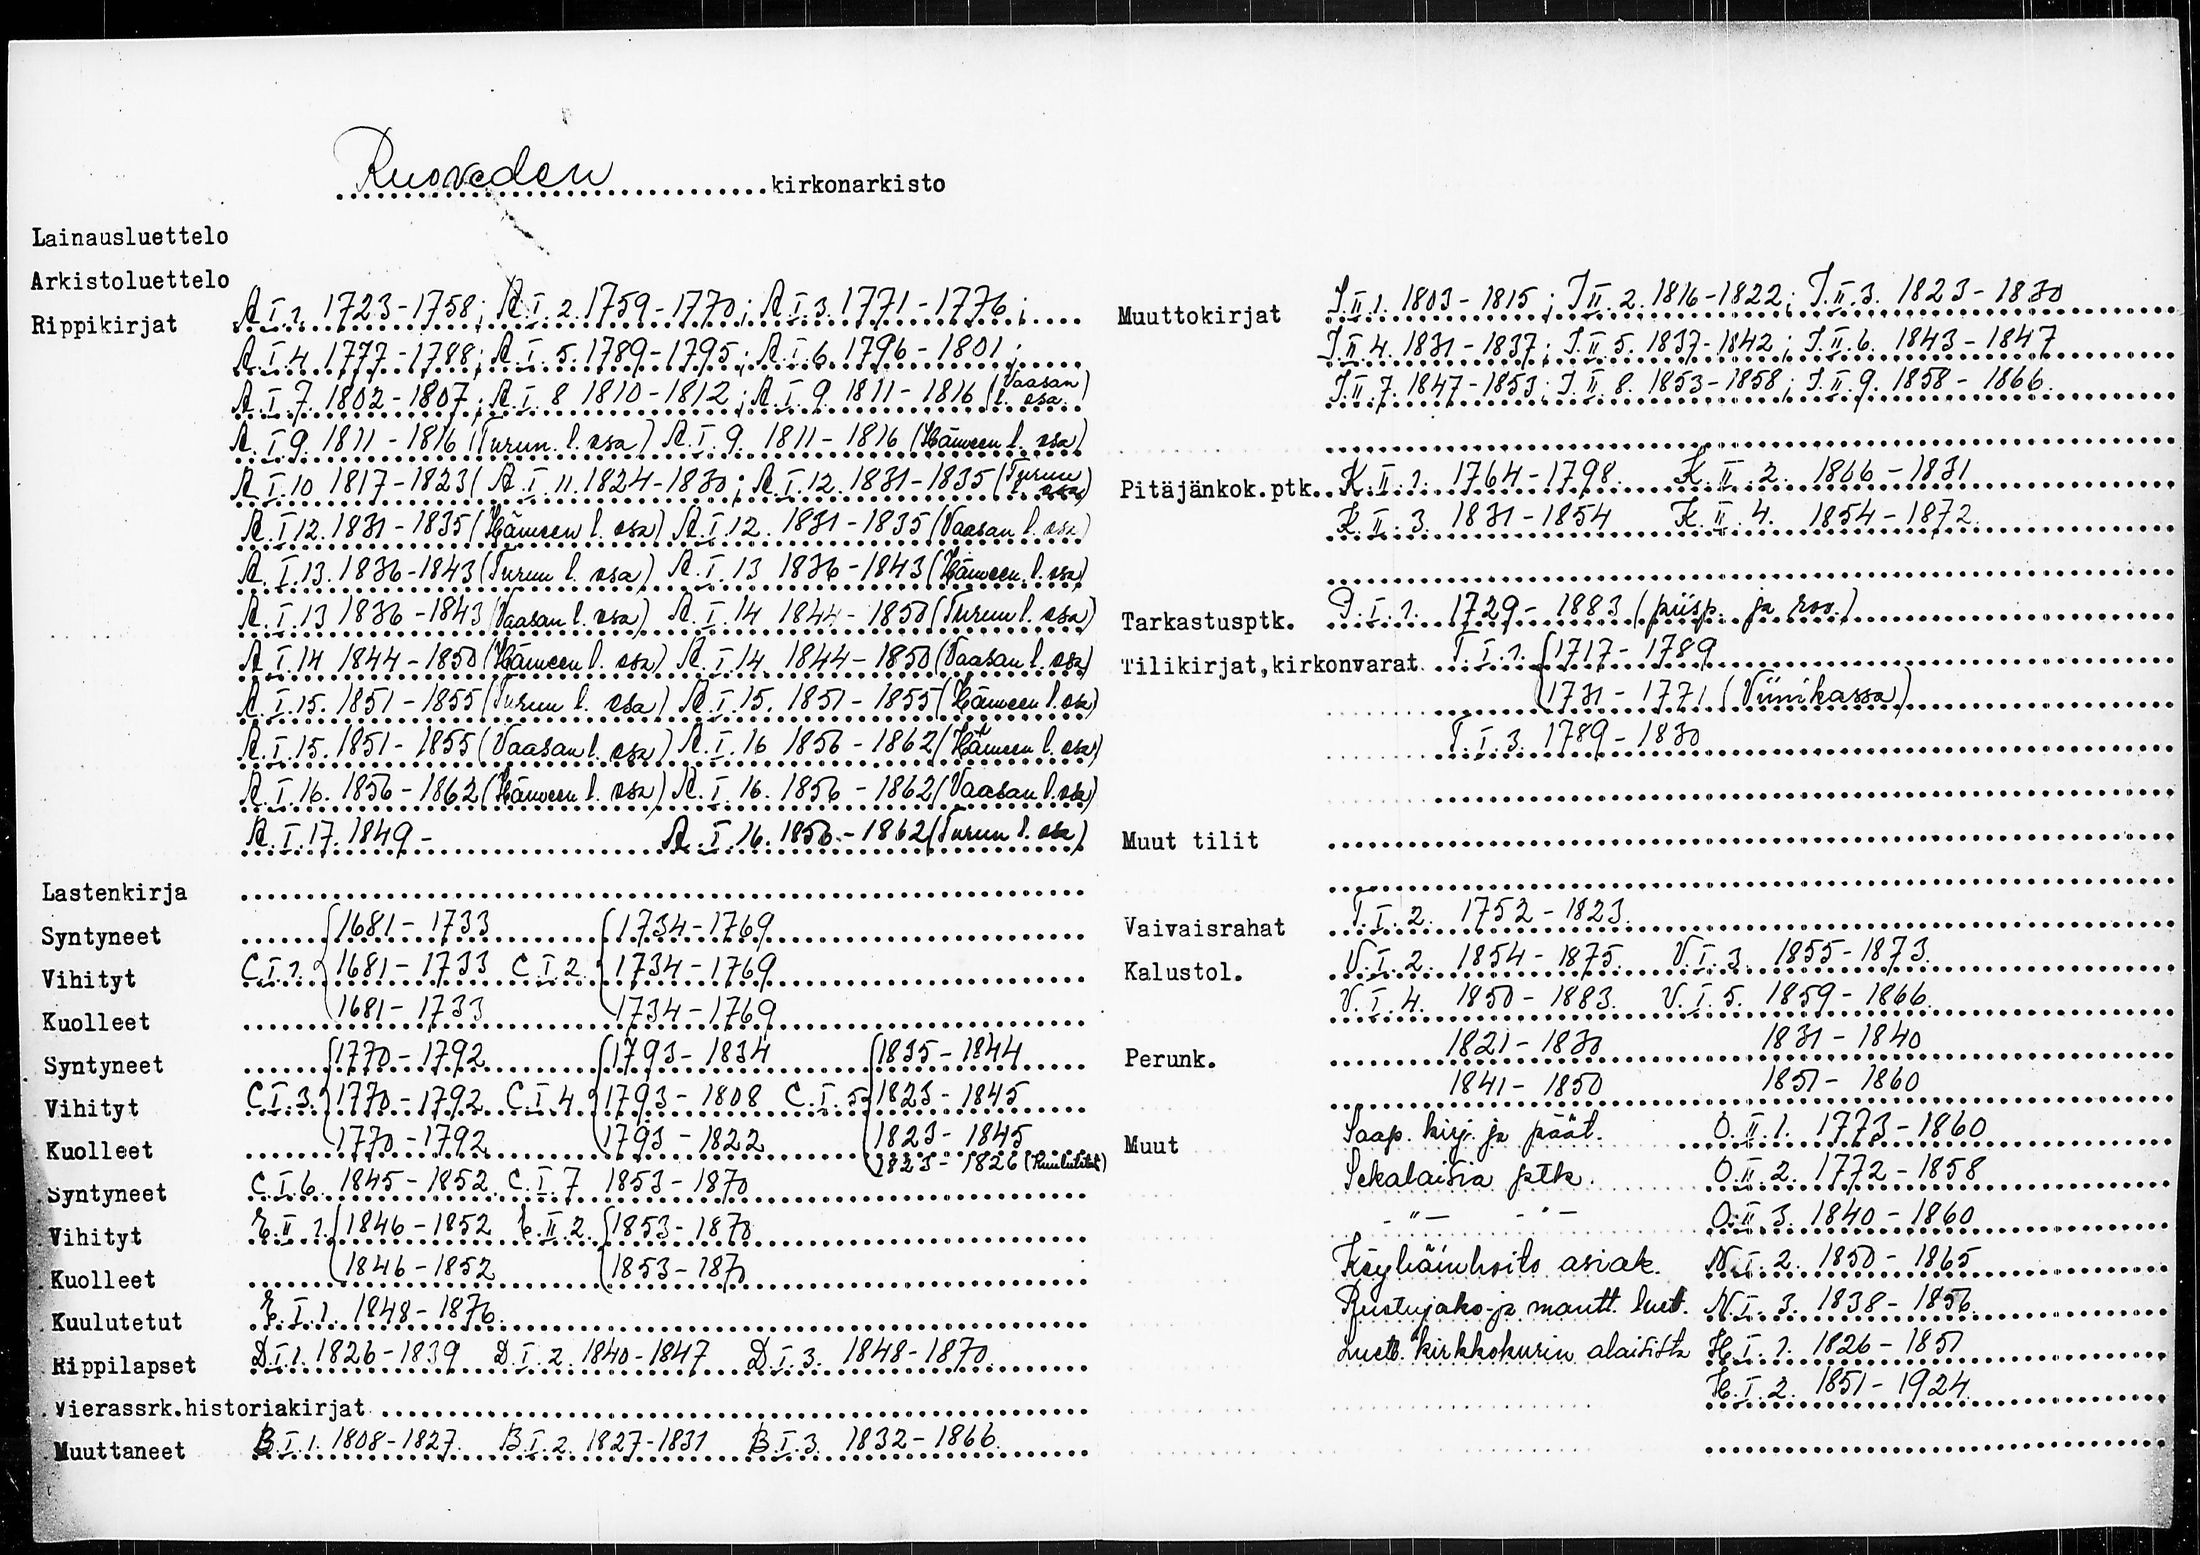 Ruoveden kirkonarkisto
Lainausluettelo
Arkistoluettelo
Rippikirjat A.I.1. 1723-1758; A.I.2. 1759-1770; A.I.3. 1771-1776;
A.I.4. 1777-1788; A.I.5. 1789-1795; A.I.6. 1796-1801;
A.I.7. 1802-1807; A.I.8 1810-1812; A.I.9. 1811-1816 (Vaasan l. osa)
A.I.9. 1811-1816 (Turun l. osa) A.I.9. 1811-1816 (Hämeen l. osa)
A.I.10 1817-1823( A.I.11. 1824-1830; A.I.12. 1831-1835 (Turun l. osa)
A.I.12. 1831-1835 (Hämeen l. osa) A.I.12. 1831-1835 (Vaasan l. osa)
A.I.13. 1836-1843 (Turun l. osa) A.I.13 1836-1843 (Hämeen l. osa)
A.I.13 1836-1843 (Vaasan l. osa) A.I.14 1844-1850 (Turun l. osa)
A.I.14 1844-1850 (Hämeen l. osa) A.I.14. 1844-1850 (Vaasan l. osa)
A.I.15. 1851-1855 (Turun l. osa) A.I.15. 1851-1855 (Hämeen l. osa)
A.I.15. 1851-1855 (Vaasan l. osa) A.I.16 1856-1862 (Hämeen l. osa)
A.I.16. 1856-1862 (Hämeen l. osa) A.I.16. 1856-1862 (Vaasan l. osa)
A.I.17. 1849- A.I.16. 1856-1862 (Turun l. osa)
Lastenkirja
Syntyneet 1681-1733 1734-1769
Vihityt C.I.1. 1681-1733 C.I.2. 1734-1769
Kuolleet 1681-1733 1734-1769
Syntyneet 1770-1792 1793-1834 1835-1844
Vihityt C.I.3. 1770-1792 C.I.4 1793-1808 C.I.5 1823-1845
Kuolleet 1770-1792 1793-1822 1823-1845
1823-1826 (Kuulutetut)
Syntyneet C.I.6. 1845-1852 C.I.7 1853-1870
Vihityt E.II.1. 1846-1852 E.II.2. 1853-1870
Kuolleet 1846-1852 1853-187
Kuulutetut E.I.1. 1848-1876
Rippilapset D.I.1. 1826-1839 D.I.2. 1840-1847 D.I.3. 1848-1870
Vierassrk.historiakirjat
Muuttaneet B.I.1. 1808-1827. B.I.2. 1827-1831 B.I.3. 1832-1866.
Muuttokirjat J.II.1. 1803-1815; J.II.2. 1816-1822; J.II.3. 1823-1830
J.II.4. 1831-1837; J.II.5. 1837-1842; J.II.6. 1843-1847
J.II.7. 1847-1853; J.II.8. 1853-1858; J.II.9. 1858-1866.
Pitäjänkok.ptk. K.II.1. 1764-1798. K.II.2. 1866-1831
K.II.3. 1831-1854 K.II.4. 1854-1872.
Tarkastusptk. 1729-1883 (piisp. ja rov.)
Tilikirjat,kirkonvarat T.I.1. 1717-1789
1731-1771 (Viinikassa)
T.I.3. 1789-1830
Muut tilit
Vaivaisrahat T.I.2. 1752-1823.
Kalustol. V.I.2. 1854-1875. V.I.3. 1855-1873.
V.I.4. 1850-1883. V.I.5. 1859-1866.
Perunk. 1821-1830 1831-1840
1841-1850 1851-1860
Muut Saap. kirj. ja päät. O.II.1. 1773-1860
Sekalaisia ptk. O.II.2. 1772-1858
-"- -"- O.II.3. 1840-1860
Köyhäinhoito asiak. N.I.2. 1850-1865
Ruotujako-ja mantt. luet. N.I.3. 1838-1856.
Luett. kirkkokurin alaisista H.I.1. 1826-1851
H.I.2. 1851-1924.